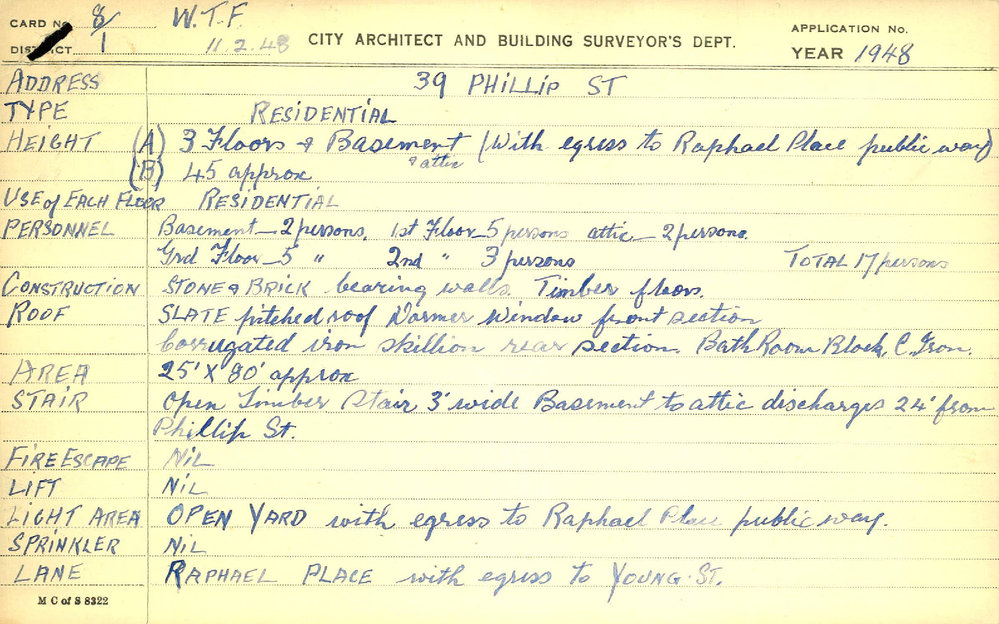 CARD No. 8/1 W.T.F.
DISTRICT 11.2.48 CITY ARCHITECT AND BUILDING SURVEYOR'S DEPT. APPLICATION No.
YEAR 1948
ADDRESS 39 PHILLIP ST
TYPE RESIDENTIAL
HEIGHT (A) 3 Floors & Basement (With egress to Raphael Place public way)
& attic
(B) 45 approx
USE of EACH FLOOR RESIDENTIAL
PERSONNEL Basement - 2 persons. 1st Floor - 5 persons attic - 2 persons.
Grd Floor - 5 " 2nd " 3 persons TOTAL 17 persons
CONSTRUCTION STONE & BRICK bearing walls. Timber floors.
ROOF SLATE pitched roof Dormer Window front section
Corrugated iron skillion rear section. Bath Room Block, C. Iron.
AREA 25' X 80' approx
STAIR Open Timber Stair 3' wide Basement to attic discharges 24' from
Phillip St.
FIRE ESCAPE NiL
LIFT NiL
LIGHT AREA OPEN YARD with egress to Raphael Place public way.
SPRINKLER NiL
LANE RAPHAEL PLACE with egress to YOUNG ST.
M C of S 8322